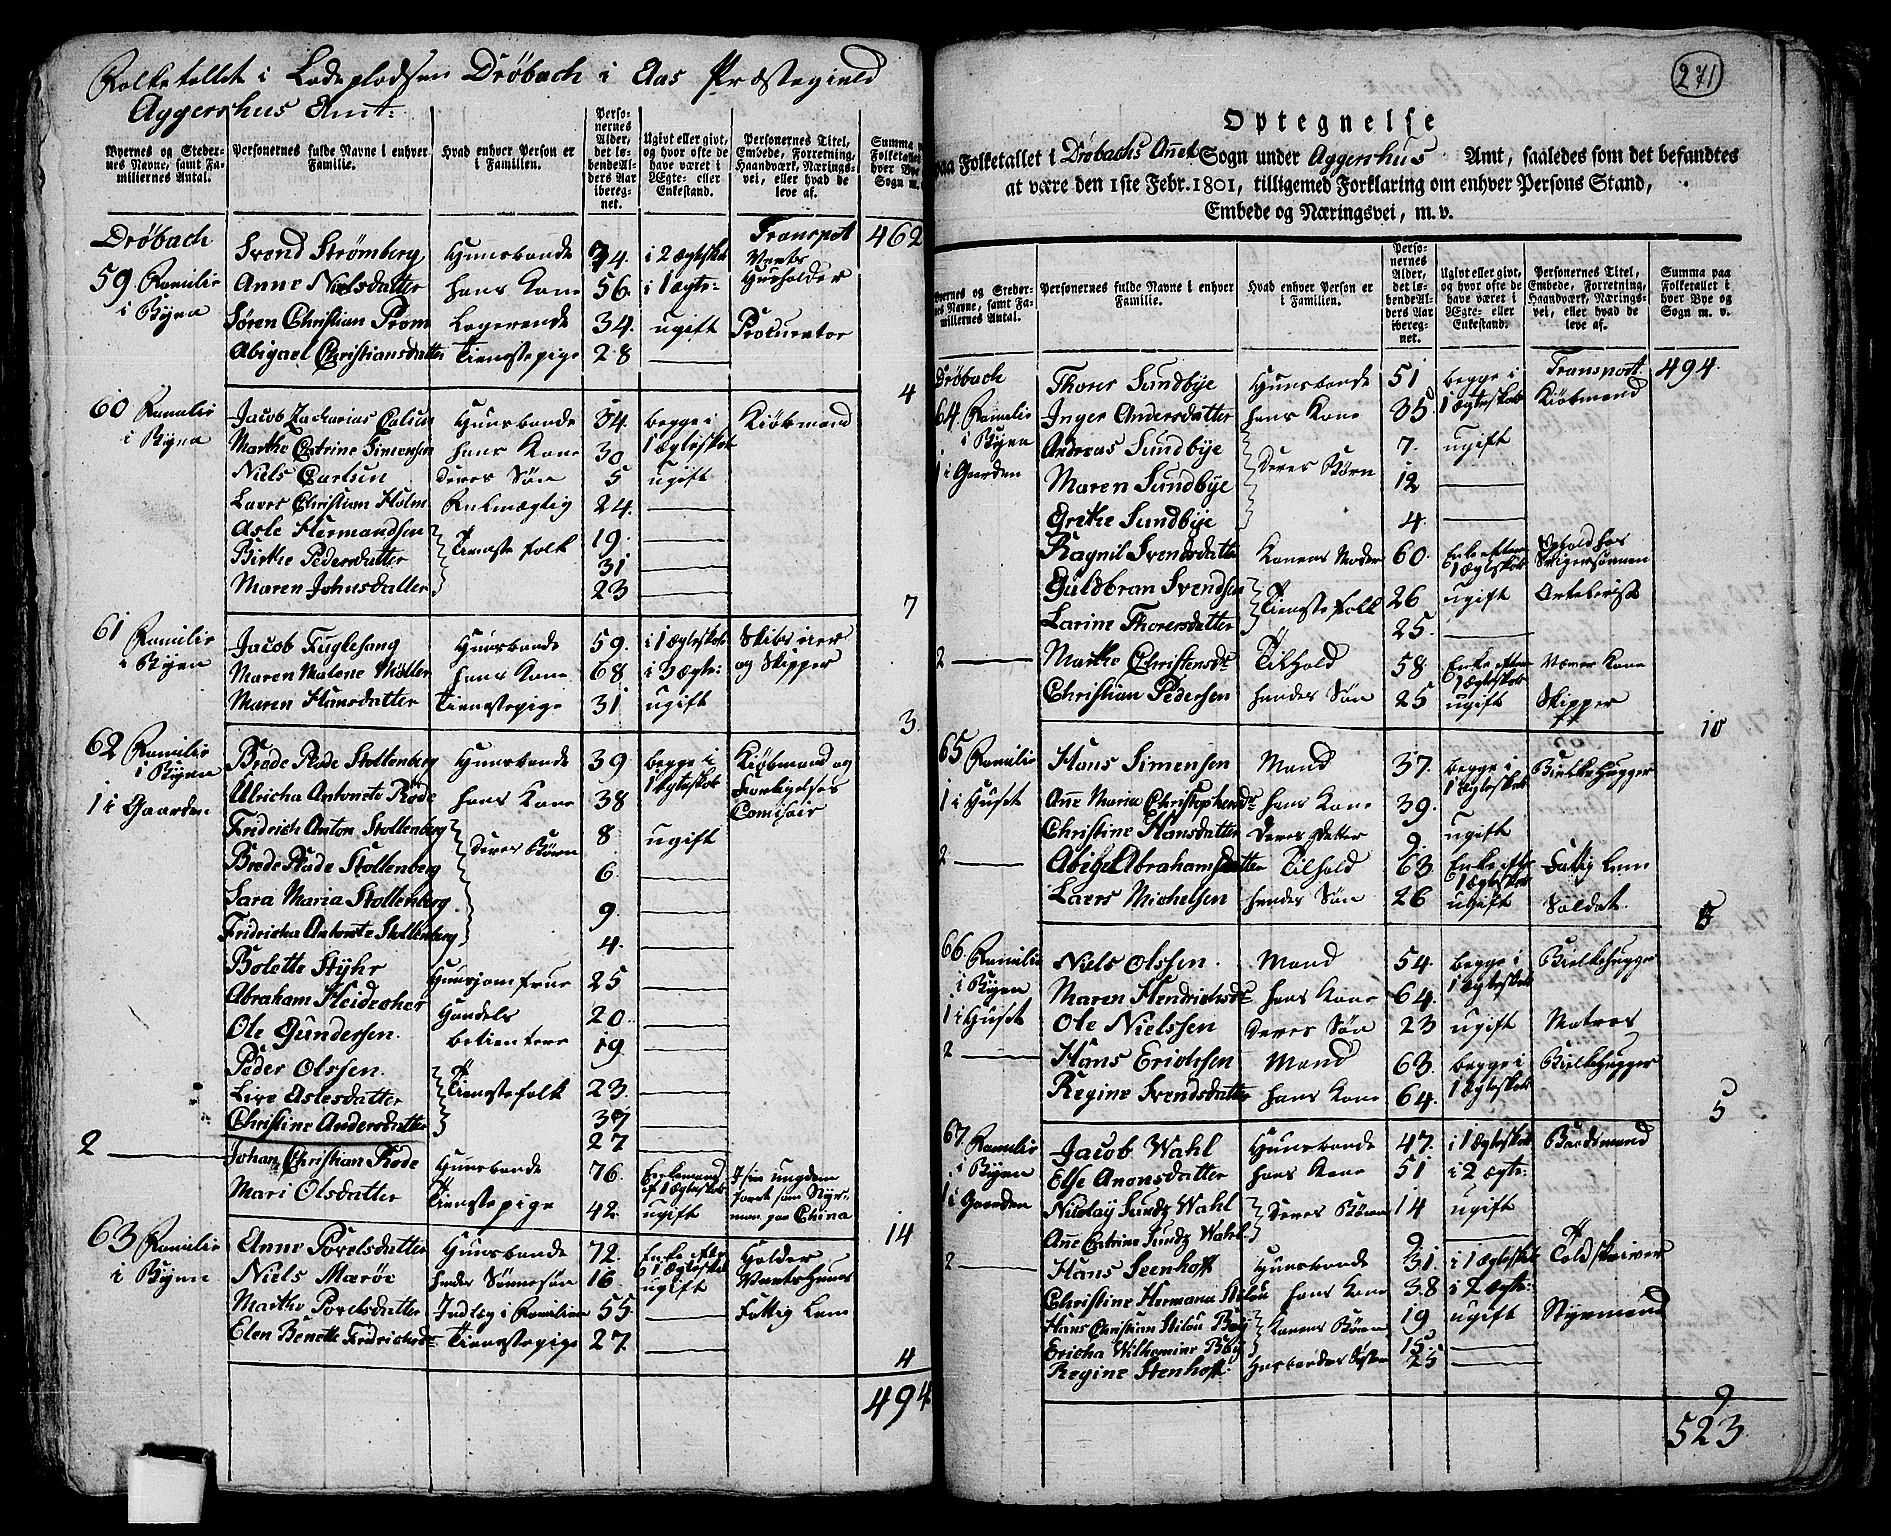 Folketallet i Ladepladsen Drøbach i Aas Præstegield
Aggershus Amt:
Byernes og Stedernes Navne, samt Familiernes Antal.
Personernes fulde Navne i enhver Familie.
Hvad enhver Person er i Familien.
Personernes Alder, det løbende Alders Aar iberegnet.
Ugivt eller givt, og hvor ofte de have været i Ægte- eller Enkestand.
Personernes Titel, Embede, Forretning, Haandværk, Næringsvei, eller hvad de leve af.
Summa paa Folketallet i hver Bye og Sogn m. v.
Drøbach Transport 462
59 Familie i Byen
Svend Strømberg Huusbonde 74. i 2 Ægteskab Vertshusholder
Anne Nielsdatter hans Kone 56. i 1 Ægte:
Søren Christian Prom Logerende 34. ugift Procurator
Abigael Christiansdatter Tienstepige 28 —
4
60 Familie i Byen
Jacob Zacharias Carlsen Huusbonde 34. begge i 1 Ægteskab Kiøbmand
Marthe Catrine Simensen hans Kone 30
Niels Carlsen deres Søn 5 ugift
Lavrs Christian Holm Fulmægtig 24. —
Asle Hermandsen Tienstefolk 19. —
Birthe Pedersdatter 31 —
Maren Johnsdatter 23 —
7
61 Familie i Byen
Jacob Fuglesang Huusbonde 59. i 1 Ægteskab Skibs iier og Skipper
Maren Malene Møller hans Kone 68 i 3 Ægte:
Maren Hansdatter Tienstepige 31 ugift
3
62 Familie i Byen
1 i Gaarden
Brede Plade Stoltenberg Huusbonde 39 begge i 1 Ægteskab Kiøbmand og Forligelses Comisair
Ulricha Antonete Rode hans Kone 38
Fredrich Anton Stoltenberg deres Børn 8 ugift
Brede Plade Stoltenberg 6. —
Sara Maria Stoltenberg 9. —
Fredricha Antonete Stoltenberg 4. —
Bolette Styhr Huusjomfrue 25 —
Abraham Heidecher Handels 20. —
Ole Gundersen. betientere 19 —
Peder Olssen. Tienstefolk 23. —
Live Aslesdatter 37 —
Christine Andersdatter 27 —
2 —
Johan Christian Rode Huusbonde 76. Enkemand af 1 Ægteskab
Mari Olsdatter Tienstepige 42. ugift
14
63 Familie i Byen
Anne Povelsdatter Huusbonde 72. Enke efter 1 Ægteskab Holder Vertshuus
Niels Marøe hendes Sønnesøn 16. ugift
Marthe Povelsdatter Indlag i Familien 55. — Fattig Lem
Elen Benette Fredrichsdr Tienstepige 27. —
4
494
271
Optegnelse
paa Folketallet i Drøbachs Annet Sogn under Aggershus Amt, saaledes som det befandtes
at være den 1ste Febr. 1801, tilligemed Forklaring om enhver Persons Stand,
Embede og Næringsvei, m. v.
Byernes og Stedernes Navne, samt Familiernes Antal.
Personernes fulde Navne i enhver Familie.
Hvad enhver Person er i Familien.
Personernes Alder, det løbende Alders Aar iberegnet.
Ugivt eller givt, og hvor ofte de have været i Ægte- eller Enkestand.
Personernes Titel, Embede, Forretning, Haandværk, Næringsvei, eller hvad de leve af.
Summa paa Folketallet i hver Bye og Sogn m. v.
Drøbach Transport 494.
64. Familie i Byen
1 i Gaarden
Thorer Sundbye Huusbonde 51 begge i 1 Ægteskab Kiøbmand
Inger Andersdatter hans Kone 35
Andreas Sundbye deres Børn 7. ugift
Maren Sundbye 12 —
Grethe Sundbye 4. —
Ragnil Svendsdatter Konens Moder 60. Enke efter 1 Ægteskab Ophold hos Svigersønnen
Guldbran Svendsen Tienstefolk 26 ugift
Larine Thorersdatter 25. —
2 —
Marthe Christensdr Tilhold 58. Enke efter 1 Ægteskab
Christian Pedersen hendes Søn 25 ugift Skipper
10
65 Familie
1 i Huset
Hans Simensen Mand 37. begge i 1 Ægteskab Bielkehugger
Anne Maria Christophersdr hans Kone 39.
Christine Hansdatter deres Datter 9. ugift
2 —
Abigel Abrahamsdatter Tilhold 63. Enke efter 1 Ægteskab Fattig Lem
Laers Michelsen hendes Søn 26 ugift Soldat.
5
66. Familie i Byen
1 i Huset
Niels Olssen. Mand 54. begge i 1 Ægteskab Bielkehugger
Maren Hendrichsdr hans Kone 64.
Ole Nielssen deres Søn 23 ugift Matros
2 —
Hans Erichssen Mand 63. begge i 1 Ægteskab Bielkehugger
Regine Svendsdatter hans Kone 64.
5
67. Familie i Byen
1 i Gaarden
Jacob Wahl Huusbonde 47. i 1 Ægteskab Baadsmand
Else Anonsdatter hans Kone 51 i 2 Ægte:
Nicolay Sundz Wahl deres Børn 14 ugift
Anne Catrine Sundz Wahl 9 —
2 —
Hans Seenhoff Huusbonde 31. i 1 Ægteskab Toldskriver
Christine Hermana Stilou hans Kone 38 i 2 Ægte:
Hans Christian Stilou Bøy Konens Børn 19 ugift Styrmand
Ericha Wilhamine Bøy 15. —
Regine Stenhoff. Husbondes Søster 25 —
9
523